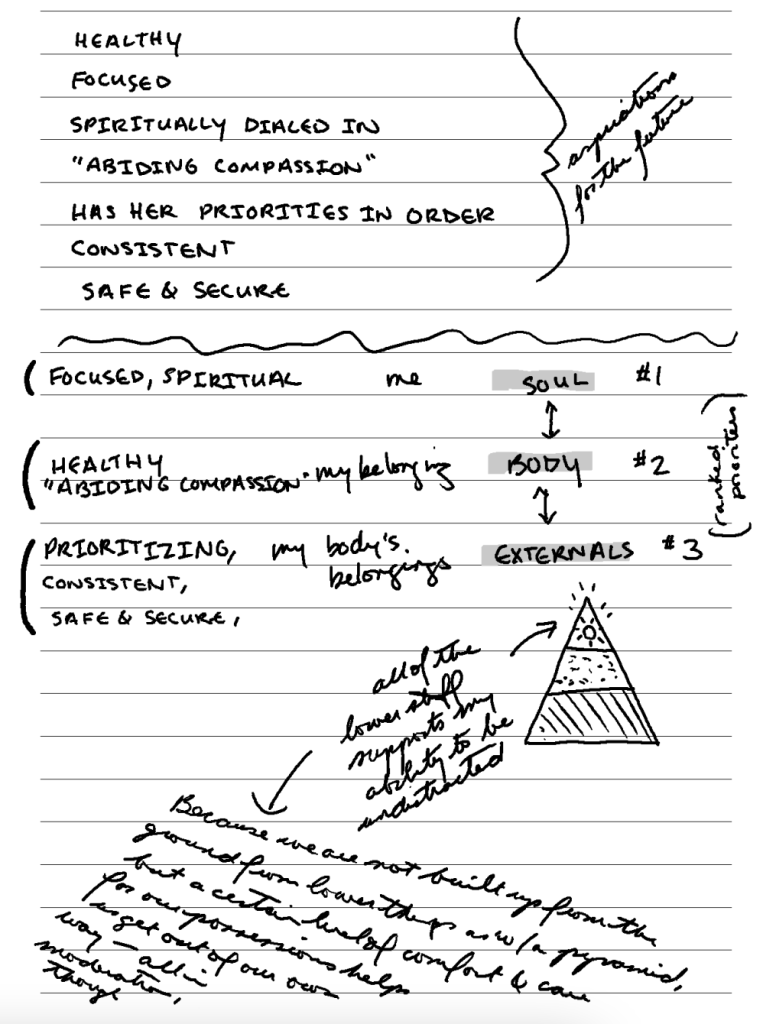 HEALTHY
FOCUSED
SPIRITUALLY DIALED IN
"ABIDING COMPASSION"
HAS HER PRIORITIES IN ORDER
CONSISTENT
SAFE & SECURE
aspirations
for the future
FOCUSED, SPIRITUAL me SOUL #1
HEALTHY
"ABIDING COMPASSION" my belonging BODY #2
PRIORITIZING, my body's. EXTERNALS #3
belongings
CONSISTENT,
SAFE & SECURE,
ranked
priorities
all of the
lower stuff
supports my
ability to be
undistracted
Because we are not built up from the
ground from lower things as w/ a pyramid,
but a certain level of comfort & care
for our possessions helps
us get out of our own
way — all in
moderation,
though